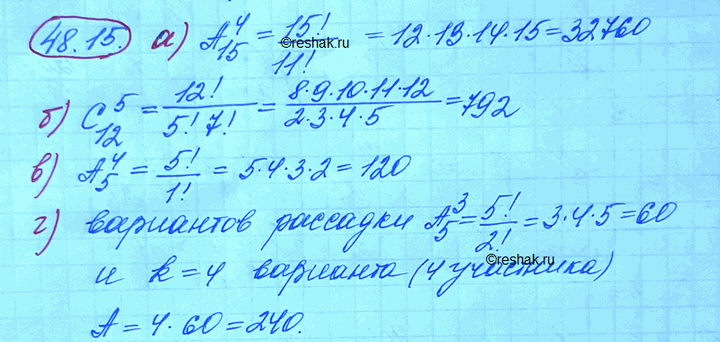 48.15. а) A₁₅⁴ = 15!/11! = 12·13·14·15 = 32760
©reshak.ru
б) C₁₂⁵ = 12!/(5! 7!) = (8·9·10·11·12)/(2·3·4·5) = 792
в) A₅⁴ = 5!/1! = 5·4·3·2 = 120
г) вариантов рассадки A₅³ = 5!/2! = 3·4·5 = 60
©reshak.ru
и k = 4 варианта (4 участника)
A = 4·60 = 240.